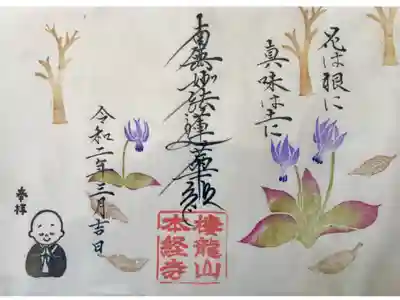 花は根に
真味は土に
南無妙法蓮華経
令和二年三月吉日
奉拝
棲龍山
本経寺